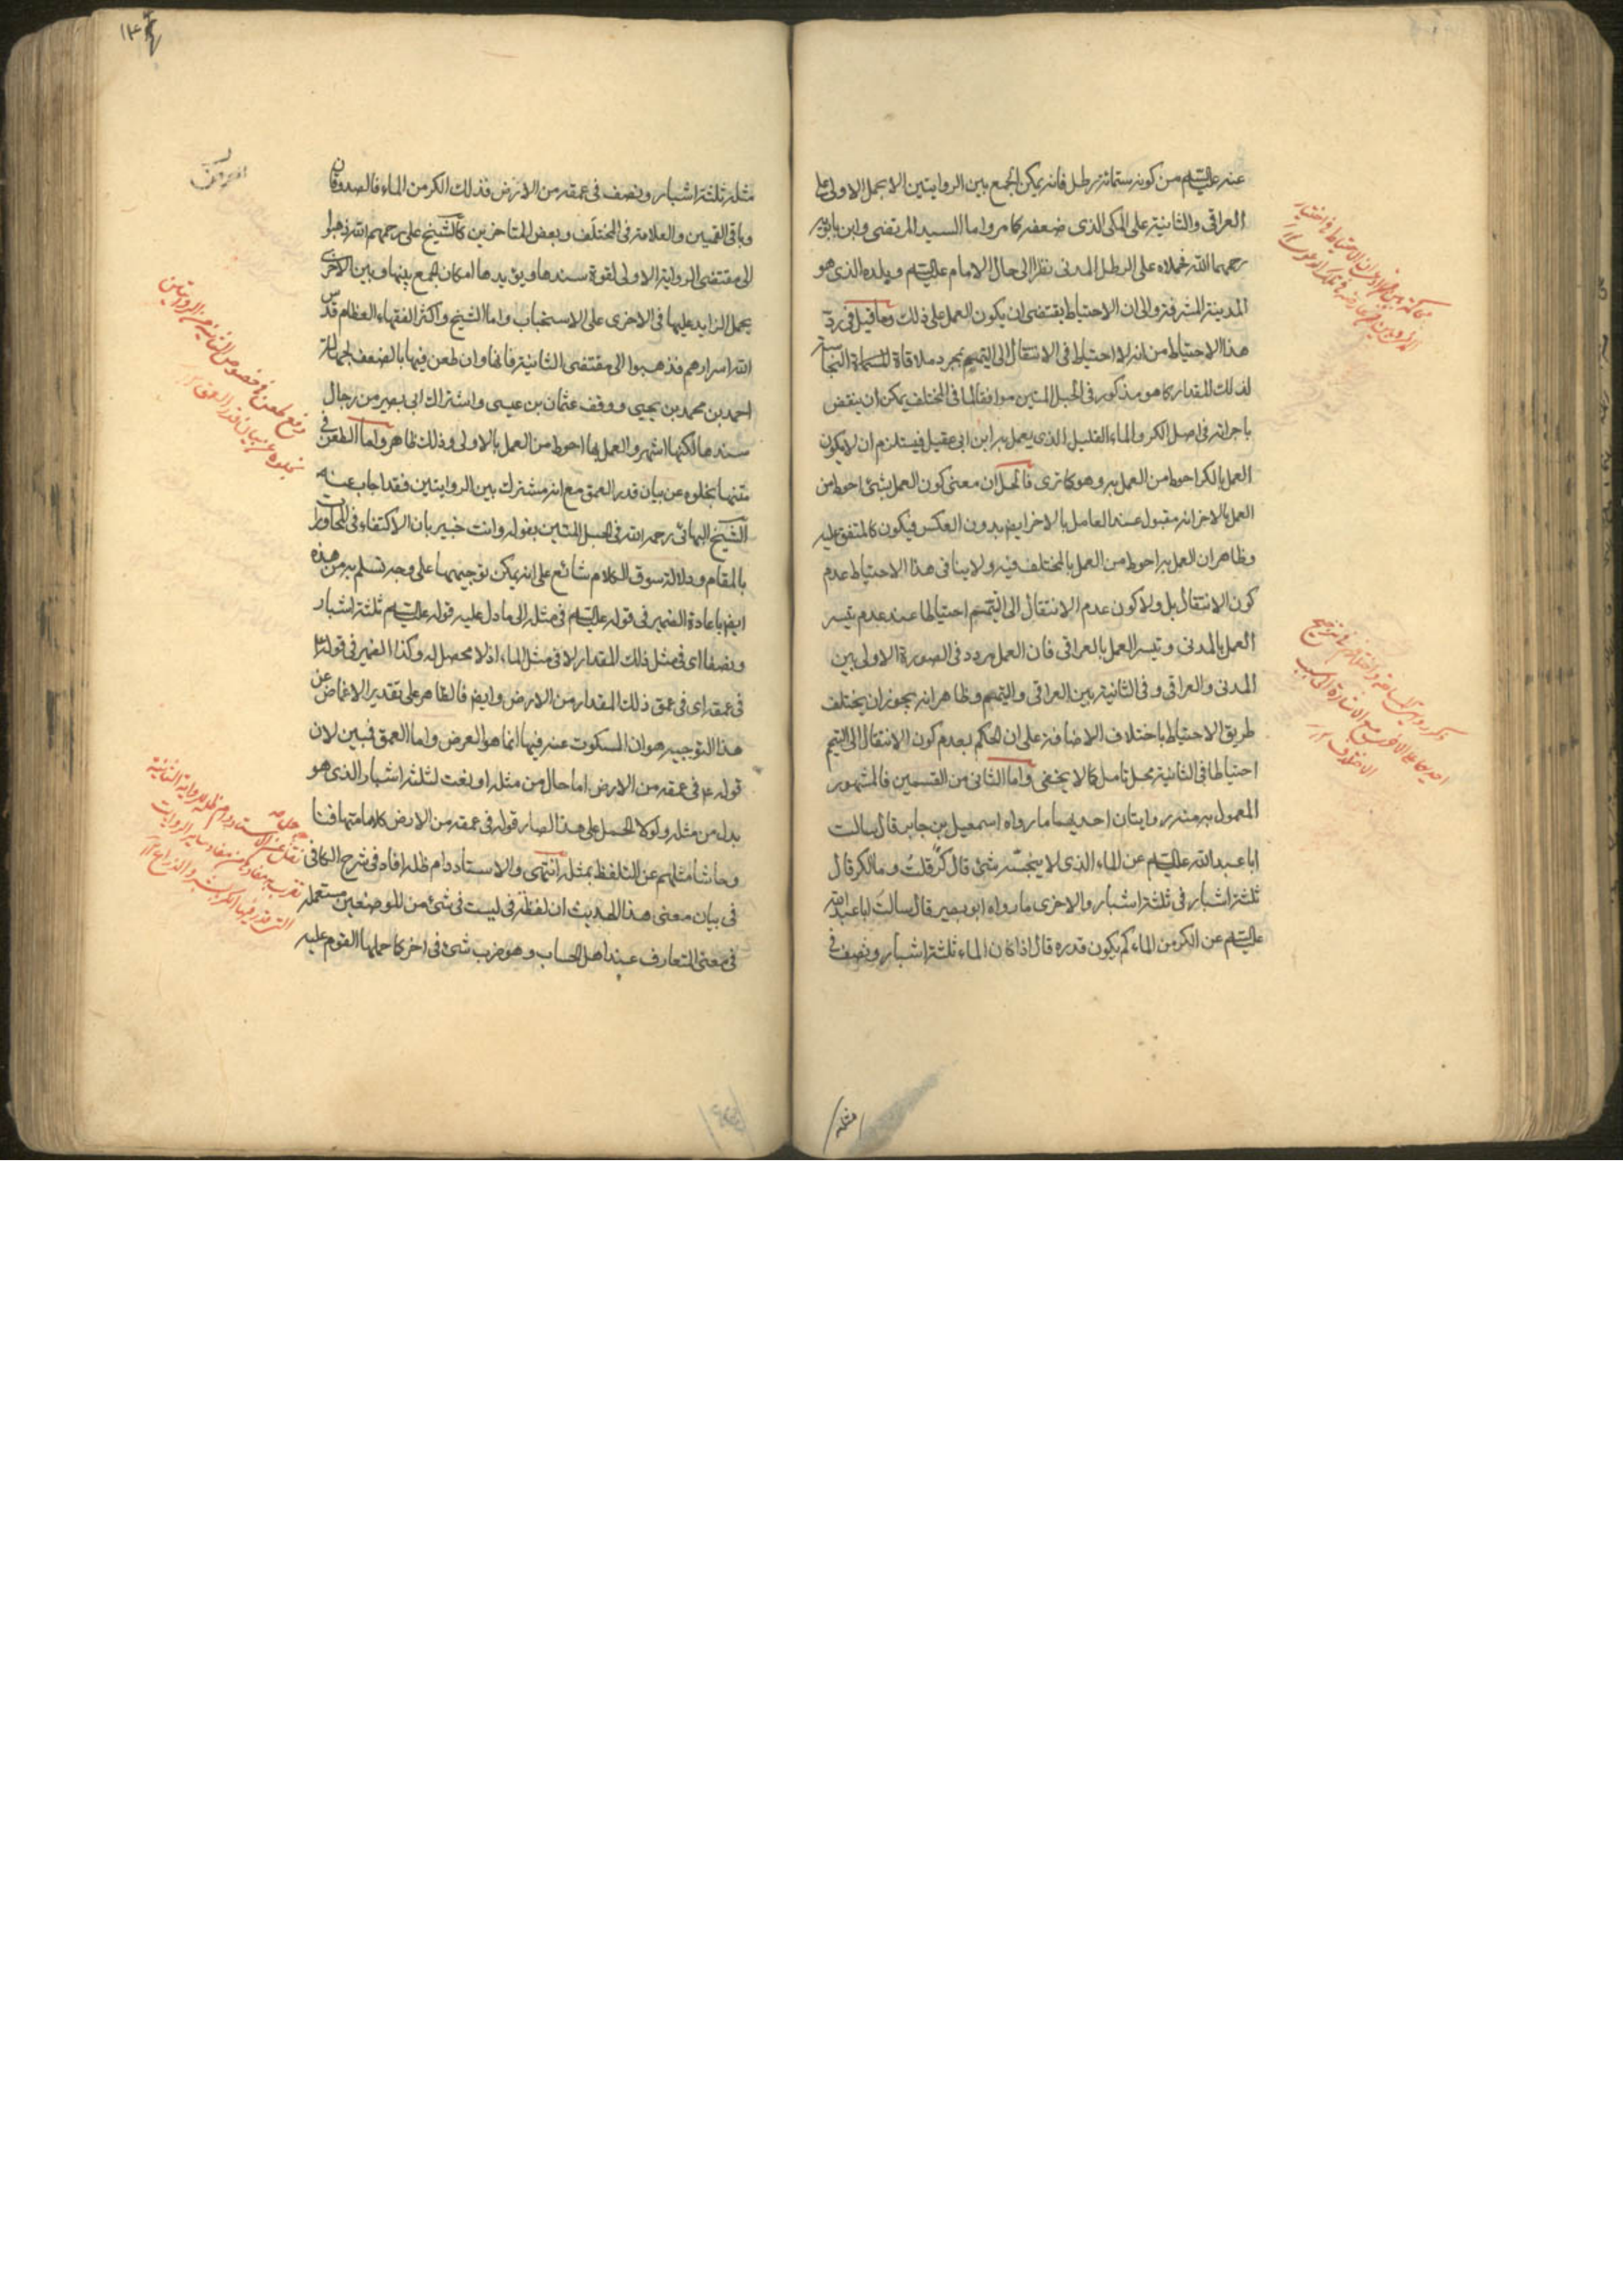 عنه عليه السلم من كونه ستمائة رطل فانه يمكن الجمع بين الروايتين الا بحمل الاولى على
العراقى والثانية على المكى الذى ضعفه كما مر واما السيد المرتضى وابن بابويه
رحمهما الله فحملاه على الرطل المدنى نظرا الى حال الامام عليه السلم وبلده الذى هو
المدينة المشرفة والى ان الاحتياط يقتضى ان يكون العمل على ذلك وما قيل فى رد
هذا الاحتياط من انه لا احتياط فى الانتقال الى التيمم بمجرد ملاقاة النجاسة
لذلك المقدار كما هو مذكور فى الحبل المتين موافقا لما فى المختلف يمكن ان ينقض
باجرائه فى اصل الكر والماء القليل الذى يعمل به ابن ابى عقيل فيستلزم ان لا يكون
العمل بالكر احوط من العمل به وهو كما ترى فالحل ان معنى كون العمل بشئ احوط من
العمل بالاخر انه مقبول عند العامل بالاخر ايضا بدون العكس فيكون كالمتفق عليه
وظاهر ان العمل به احوط من العمل بالمختلف فيه ولا ينافى هذا الاحتياط عدم
كون الانتقال بل ولا كون عدم الانتقال الى التيمم احتياطا عند عدم تيسر
العمل بالمدنى وتيسر العمل بالعراقى فان العمل مردد فى الصورة الاولى بين
المدنى والعراقى وفى الثانية بين العراقى والتيمم وظاهر انه يجوز ان يختلف
طريق الاحتياط باختلاف الاضافة على ان الحكم بعدم كون الانتقال الى التيمم
احتياطا فى الثانية محل تامل كما لا يخفى واما الثانى من القسمين فالمشهور
المعمول به منه روايتان احديهما ما رواه اسمعيل بن جابر قال سالت
ابا عبد الله عليه السلم عن الماء الذى لا ينجسه شئ قال كر قلت وما الكر قال
ثلثة اشبار فى ثلثة اشبار والاخرى ما رواه ابو بصير قال سالت ابا عبد الله
عليه السلم عن الكر من الماء كم يكون قدره قال اذا كان الماء ثلثة اشبار ونصف فى
مثله
مثله ثلثة اشبار ونصف فى عمقه من الارض فذلك الكر من الماء فالصدوقان
وباقى القميين والعلامة فى المختلف وبعض المتاخرين كالشيخ على رحمهم الله ذهبوا
الى مقتضى الرواية الاولى لقوة سندها ويؤيدها امكان الجمع بينها وبين الاخرى
بحمل الزايد عليها فى الاخرى على الاستحباب واما الشيخ واكثر الفقهاء العظام قدس
الله اسرارهم فذهبوا الى مقتضى الثانية فانها وان طعن فيها بالضعف لجهالة
احمد بن محمد بن يحيى ووقف عثمان بن عيسى واشتراك ابى بصير من رجال
سندها لكنها اشهر والعمل بها احوط من العمل بالاولى وذلك ظاهر واما الطعن فى
متنها بخلوه عن بيان قدر العمق مع انه مشترك بين الروايتين فقد اجاب عنه
الشيخ البهائى رحمه الله فى الحبل المتين بقوله وانت خبير بان الاكتفاء فى المحاورات
بالمقام ودلالة سوق الكلام شائع على انه يمكن توجيهها على وجه تسلم به من هذه
ايضا باعادة الضمير فى قوله عليه السلم فى مثله الى ما دل عليه قوله عليه السلم ثلثة اشبار
ونصفا اى فى مثل ذلك المقدار لا فى مثل الماء اذ لا محصل له وكذا الضمير فى قوله
فى عمقه اى فى عمق ذلك المقدار من الارض وايضا فالظاهر على تقدير الاغماض عن
هذا التوجيه هو ان المسكوت عنه فيها انما هو العرض واما العمق فبين لان
قوله ع فى عمقه من الارض اما حال من مثله او نعت لثلثة اشبار الذى هو
بدل من مثله ولولا الحمل على هذا لصار قوله فى عمقه من الارض كلاما متهافتا
وحاشا مثلهم عن التلفظ بمثله انتهى والاستاد دام ظله افاد فى شرح الكافى
فى بيان معنى هذا الحديث ان لفظة فى ليست فى شئ من الموضعين مستعملة
فى معنى المتعارف عند اهل الحساب وهو ضرب شئ فى اخر كما حملها القوم عليه